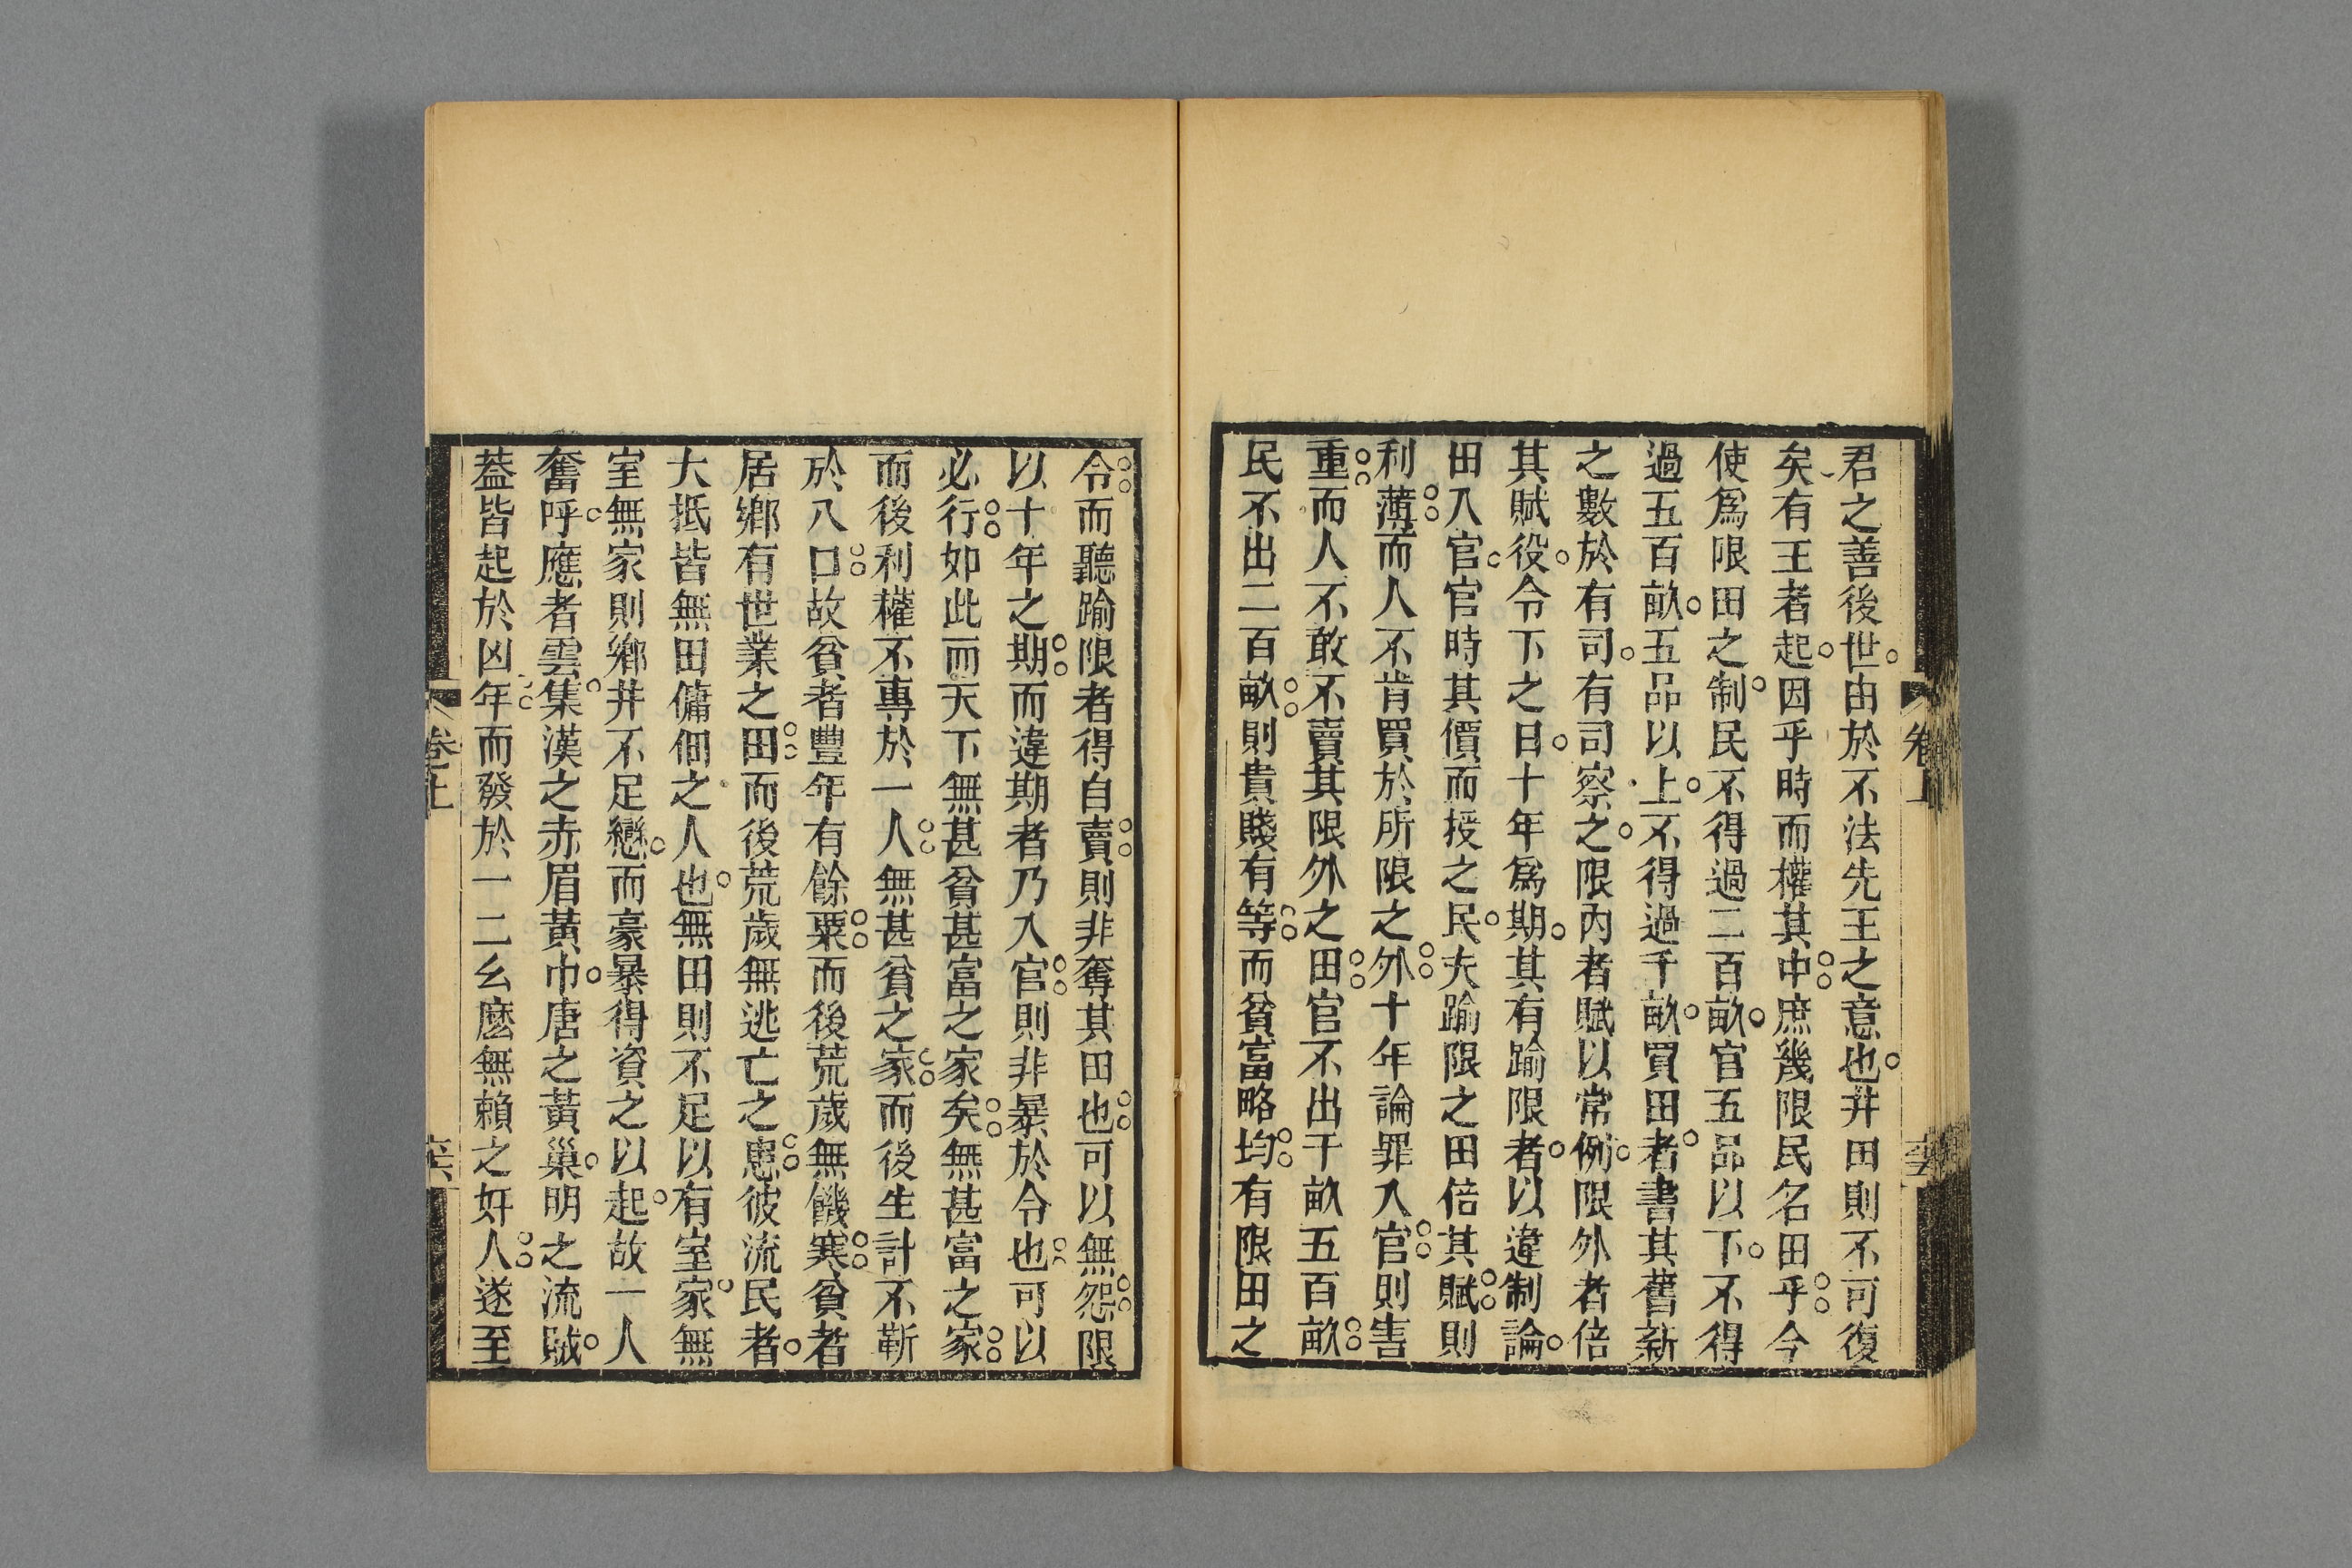 君之善後世由於不法先王之意也井田則不可復
矣有王者起因乎時而權其中庶幾限民名田乎今
使爲限田之制民不得過二百畝官五品以下不得
過五百畝五品以上不得過千畝買田者書其舊新
之數於有司有司察之限內者賦以常例限外者倍
其賦役令下之日十年爲期其有踰限者以違制論
田入官官時其價而授之民夫踰限之田倍其賦則
利薄而人不肯買於所限之外十年論罪入官則害
重而人不敢不賣其限外之田官不出千畝五百畝
民不出二百畝則貴賤有等而貧富略均有限田之
令而聽踰限者得自賣則非奪其田也可以無怨限
以十年之期而違期者乃入官則非暴於令也可以
必行如此而天下無甚貧甚富之家矣無甚富之家
而後利權不專於一人無甚貧之家而後生計不靳
於八口故貧者豐年有餘粟而後荒歲無饑寒貧者
居鄉有世業之田而後荒歲無逃亡之患彼流民者
大抵皆無田傭佃之人也無田則不足以有室家無
室無家則鄉井不足戀而豪暴得資之以起故一人
奮呼應者雲集漢之赤眉黃巾唐之黃巢明之流賊
葢皆起於凶年而發於一二幺麽無賴之奸人遂至
卷上
卷上